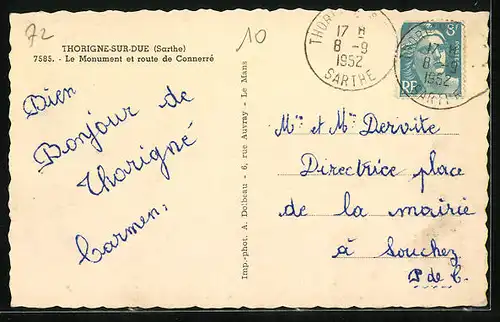 72
10
THORIGNE-SUR-DUE (Sarthe)
7585. - Le Monument et route de Connerré
Bien
Bonjour de
Thorigné
Carmen,
Imp.-phot. A. Dolbeau - 6, rue Auvray - Le Mans
THORIGNE
17 H
8 -9
1952
SARTHE
8F
RF
17 H
8 -9
1952
SARTHE
Mr et Mme Dervite
Directrice place
de la mairie
à Souchez
P de C.